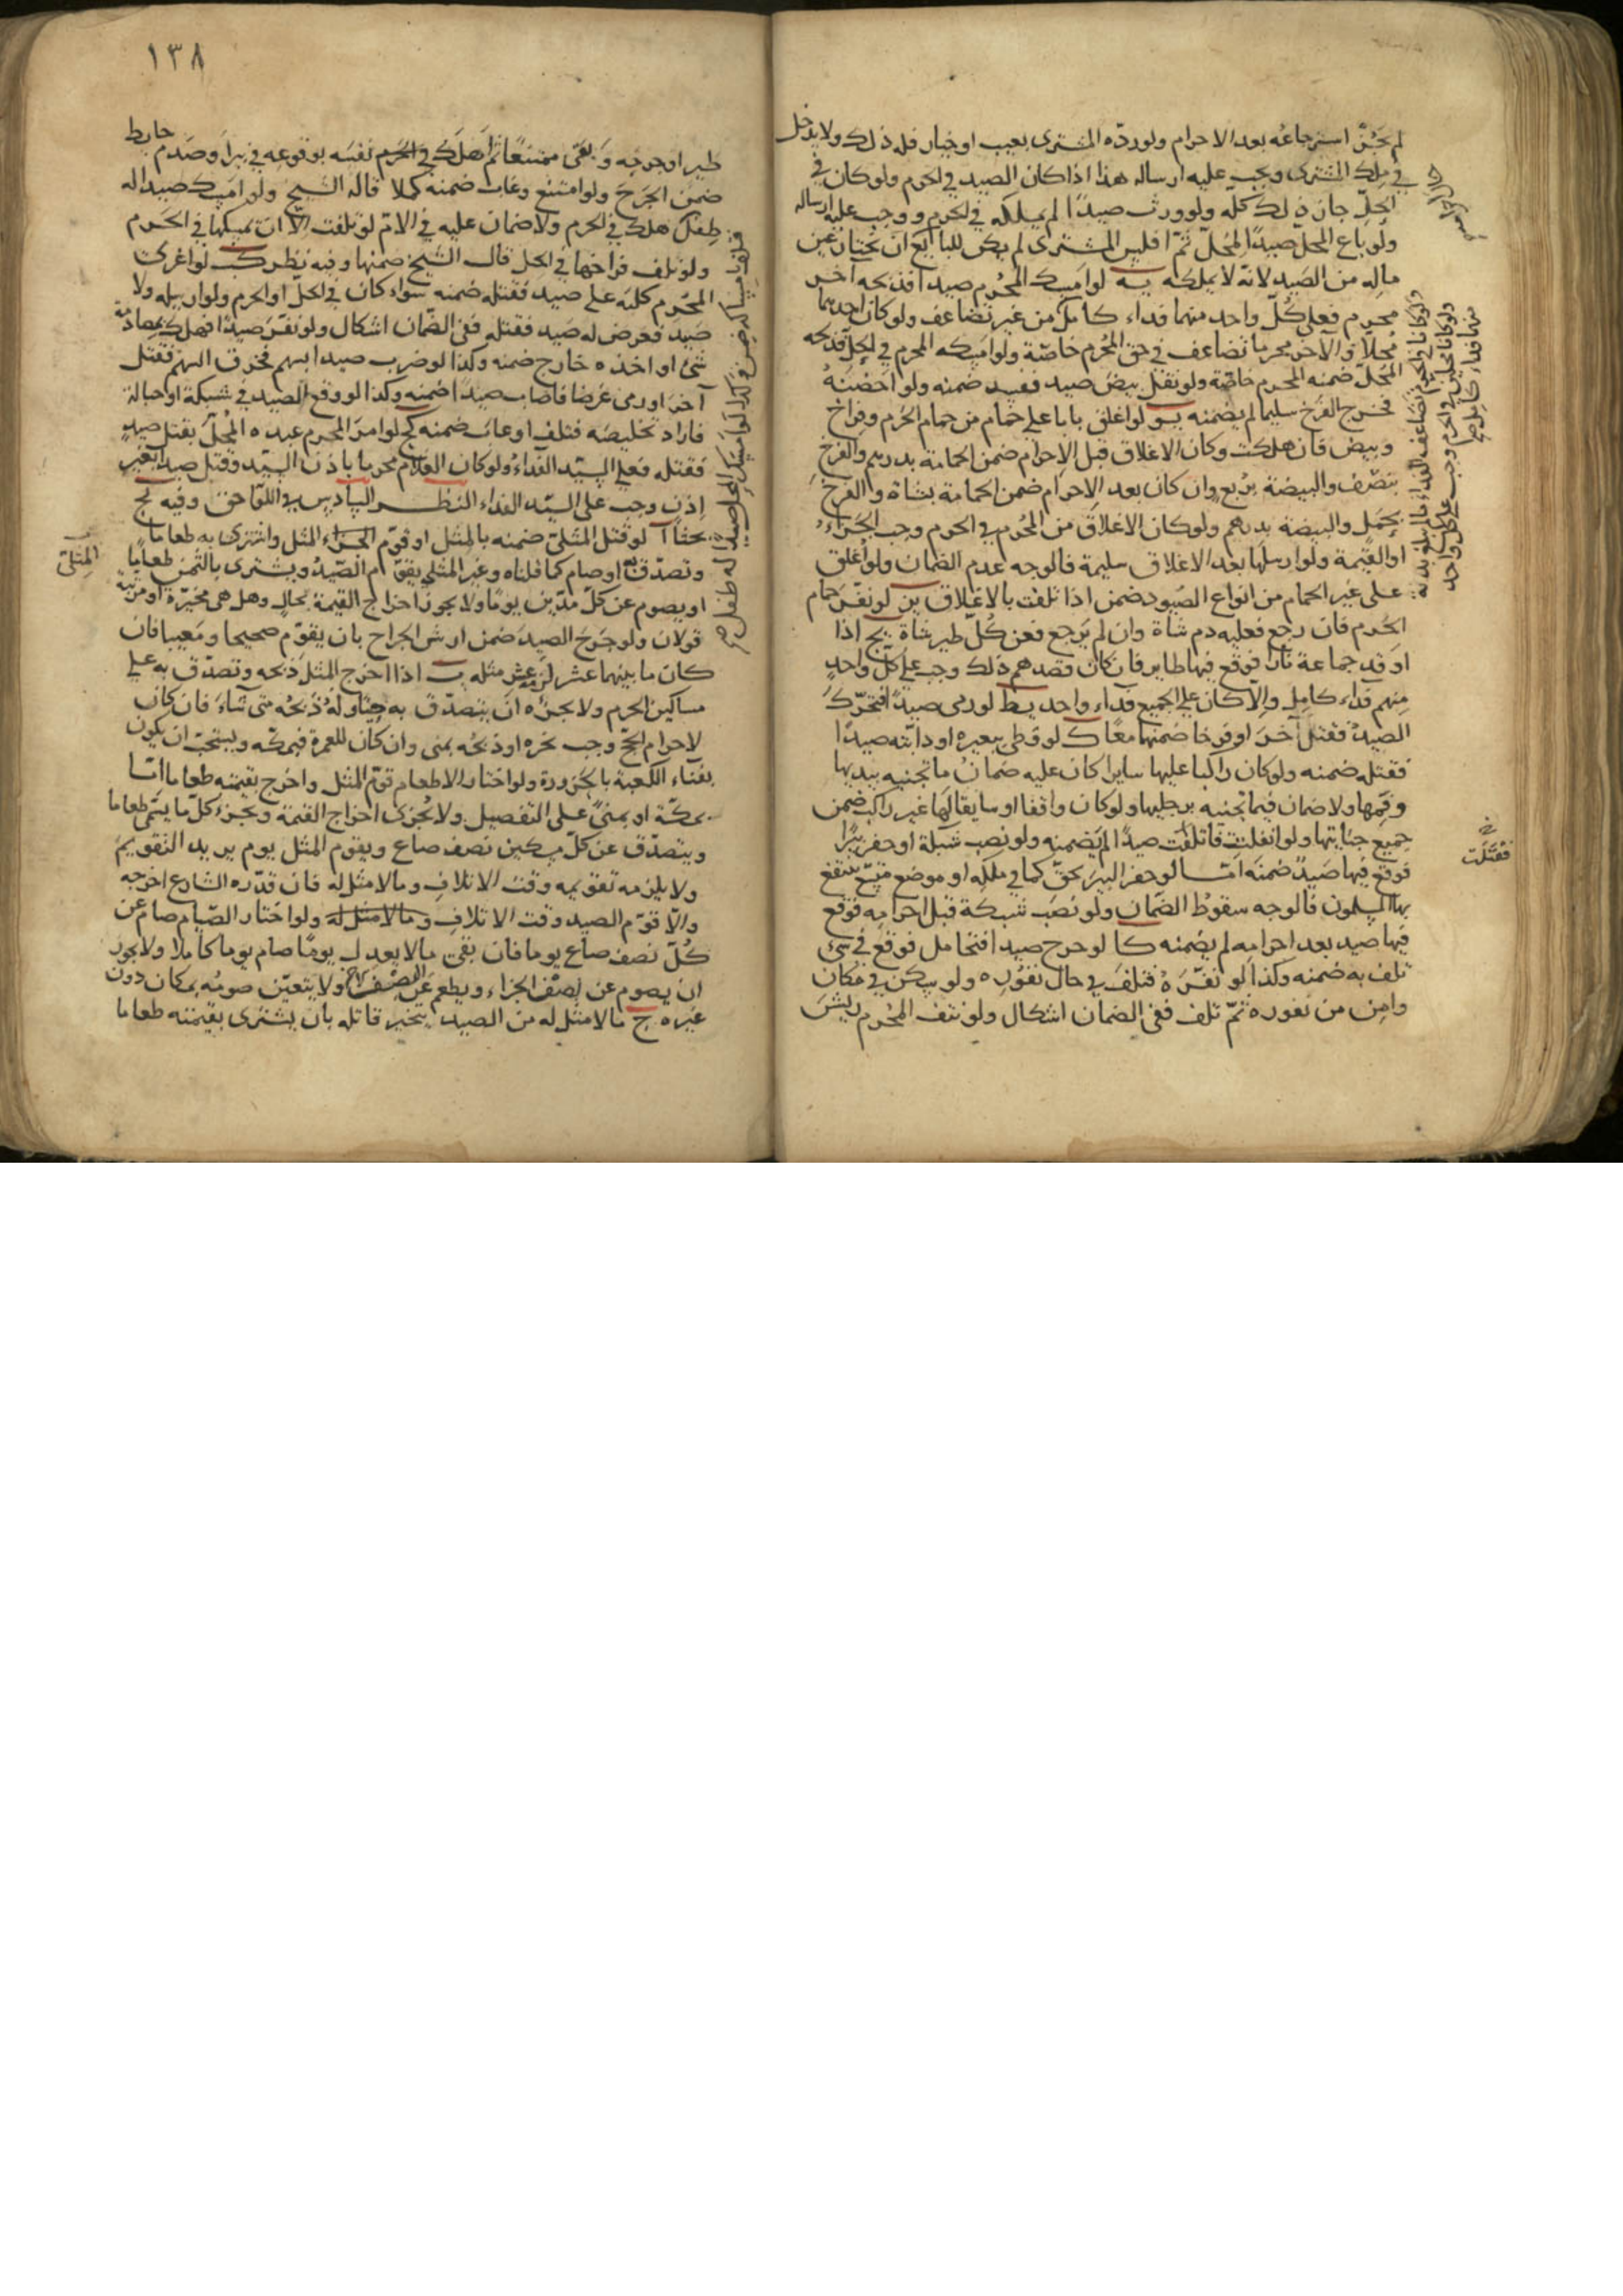 لم يجز استرجاعه بعد الاحرام ولو رده المشترى بعيب او خيار فله ذلك ولا يدخل
في ملك المشترى ويجب عليه ارساله هذا اذا كان الصيد في الحرم ولو كان في
الحل جاز ذلك كله ولو ورث صيدًا لم يملكه في الحرم ووجب عليه ارساله
ولو باع المحل صيدًا لمحل ثم افلس المشترى لم يكن للبايع ان يختار عين
ماله من الصيد لانه لا يملكه يه لو امسك المحرم صيدا فذبحه آخر
محرم فعلى كل واحد منهما فداء كامل من غير تضاعف ولو كان احدهما
محلا والآخر محرما تضاعف في حق المحرم خاصة ولو امسكه المحرم في الحل فذبحه
المحل ضمنه المحرم خاصة ولو نقل بيض صيد ففسد ضمنه ولو احضنه
فخرج الفرخ سليما لم يضمنه يو لو اغلق بابا على حمام من حمام الحرم وفراخ
وبيض فان هلكت وكان الاغلاق قبل الاحرام ضمن الحمامة بدرهم والفرخ
بنصف والبيضة بربع وان كان بعد الاحرام ضمن الحمامة بشاة والفرخ
بحمل والبيضة بدرهم ولو كان الاغلاق من المحرم في الحرم وجب الجزاء
او القيمة ولو ارسلها بعد الاغلاق سليمة فالوجه عدم الضمان ولو اغلق
على غير الحمام من انواع الصيود ضمن اذا تلفت بالاغلاق يز لو نفر حمام
الحرم فان رجع فعليه دم شاة وان لم يرجع فعن كل طير شاة يح اذا
اوقد جماعة نارا فوقع فيها طاير فان كان قصدهم ذلك وجب على كل واحد
منهم فداء كامل والا كان على الجميع فداء واحد يط لو رمى صيدًا فتحرك
الصيد فقتل آخر او فرخا ضمنهما معًا ك لو وطى ببعيره او دابته صيدًا
فقتله ضمنه ولو كان راكبا عليها سايرا كان عليه ضمان ما تجنيه بيديها
وفمها ولا ضمان فيما تجنيه برجليها ولو كان واقفا او سايقا لها غير راكب ضمن
جميع جنايتها ولو انفلتت فاتلفت صيدًا لم يضمنه ولو نصب شبكة او حفر بيرًا
فوقع فيها صيد ضمنه اما لو حفر البير بحق كما في ملكه او موضع متسع ينتفع
بها المسلمون فالوجه سقوط الضمان ولو نصب شبكة قبل احرامه فوقع
فيها صيد بعد احرامه لم يضمنه كا لو جرح صيدا فتحامل فوقع في شئ
تلف به ضمنه وكذا لو نفره فتلف في حال نفوره ولو سكن في مكان
وامن من نفوره ثم تلف ففي الضمان اشكال ولو نتف المحرم ريش
ولو كانا في الحرم تضاعف الفداء ما لم يبلغ بدنة
ولو كانا محلين في الحرم وجب على كل واحد
منهما فداء كامل صح
فقتلت
١٣٨
طير او جرحه وبقى ممتنعًا ثم اهلك في الحرم نفسه بوقوعه في بير او صدم حايط
ضمن الجرح ولو امتنع وغاب ضمنه كملا قاله الشيخ ولو امسك صيدا له
طفل هلك في الحرم ولا ضمان عليه في الام لو تلفت الا ان يمسكها في الحرم
ولو تلف فراخها في الحل قال الشيخ ضمنها وفيه نظر كب لو اغرى
المحرم كلبه على صيد فقتله ضمنه سواء كان في الحل او الحرم ولو ارسله ولا
صيد فعرض له صيد فقتله ففى الضمان اشكال ولو نفر صيدًا فهلك بمصادمة
شئ او اخذه خارج ضمنه وكذا لو ضرب صيدا بسهم فخرق السهم فقتل
آخر او رمى غرضا فاصاب صيدًا ضمنه وكذا لو وقع الصيد في شبكة او حبالة
فاراد تخليصه فتلف او عاب ضمنه كج لو امر المحرم عبده المحل بقتل صيد
فقتله فعلى السيد الفداء ولو كان الغلام محرما باذن السيد وقتل صيدًا بغير
اذن وجب على السيد الفداء النظر السادس في اللواحق وفيه كج
بحثا آ لو قتل المثلى ضمنه بالمثل او قوم الجزاء المثل واشترى به طعاما
وتصدق به او صام كما قلناه وغير المثلى يقوم الصيد ويشترى بالثمن طعامًا
او يصوم عن كل مدين يومًا ولا يجوز اخراج القيمة بحال وهل هي مخيرة او مرتبة
قولان ولو جرح الصيد ضمن ارش الجراح بان يقوم صحيحا ومعيبا فان
كان ما بينهما عشر لزمه عشر مثله ب اذا اخرج المثل ذبحه وتصدق به على
مساكين الحرم ولا يجزه ان يتصدق به حيًا وله ذبحه متى شاء فان كان
لاحرام الحج وجب نحره او ذبحه بمنى وان كان للعمرة فبمكة ويستحب ان يكون
بفناء الكعبة بالحزورة ولو اختار الاطعام قوم المثل واخرج بقيمته طعاما اما
بمكة او بمنى على التفصيل ولا يجزى اخراج القيمة ويجزء كل ما يسمى طعاما
ويتصدق عن كل مسكين نصف صاع ويقوم المثل يوم يريد التقويم
ولا يلزمه تقويمه وقت الاتلاف وما لا مثل له فان قدره الشارع اخرجه
والا قوم الصيد وقت الاتلاف وما لا مثل له ولو اختار الصيام صام عن
كل نصف صاع يوما فان بقى ما لا يعدل يومًا صام يوما كاملا ولا يجوز
ان يصوم عن نصف الجزاء ويطعم عن النصف ولا يتعين صومه بمكان دون
غيره ج ما لا مثل له من الصيد يتخير قاتله بان يشترى بقيمته طعاما
المثلى